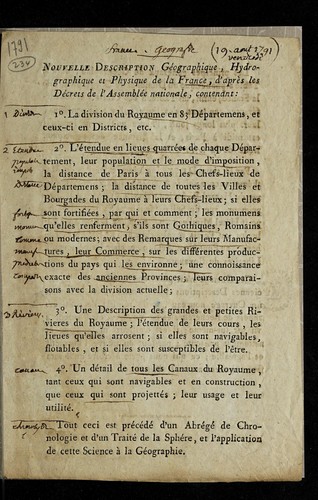 1791
234
france . Geographie
(19. aout 1791
vendredi
NOUVELLE DESCRIPTION Géographique, Hydro-
graphique et Physique de la France, d'après les
Décrets de l'Assemblée nationale, contenant:
1 Division
1º. La division du Royaume en 83 Départemens, et
ceux-ci en Districts, etc.
2 Etendue
2º. L'étendue en lieues quarrées de chaque Dépar-
population
tement, leur population et le mode d'imposition,
impots
la distance de Paris à tous les Chefs-lieux de
Distance
Départemens; la distance de toutes les Villes et
Bourgades du Royaume à leurs Chefs-lieux; si elles
sont fortifiées, par qui et comment; les monumens
qu'elles renferment, s'ils sont Gothiques, Romains
ou modernes; avec des Remarques sur leurs Manufac-
tures, leur Commerce, sur les différentes produc-
tions du pays qui les environne; une connoissance
exacte des anciennes Provinces; leurs comparai-
sons avec la division actuelle;
3 Rivieres
3º. Une Description des grandes et petites Ri-
vieres du Royaume; l'étendue de leurs cours, les
lieues qu'elles arrosent; si elles sont navigables,
flotables, et si elles sont susceptibles de l'être.
canaux
4º. Un détail de tous les Canaux du Royaume,
tant ceux qui sont navigables et en construction,
que ceux qui sont projettés; leur usage et leur
utilité.
Tout ceci est précédé d'un Abrégé de Chro-
nologie et d'un Traité de la Sphére, et l'application
de cette Science à la Géographie.